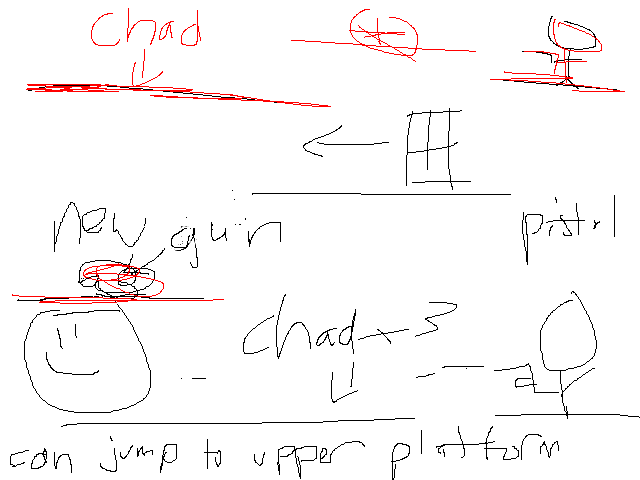 chad
new gun
pistol
chad x 3
can jump to upper platform